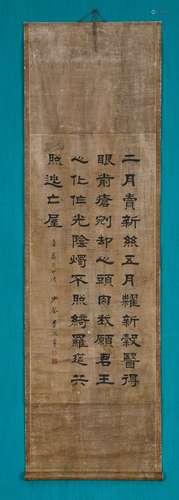 二月賣新絲五月糶新穀醫得
眼前瘡剜却心頭肉我願君王
心化作光陰燭不照綺羅筵只
照逃亡屋